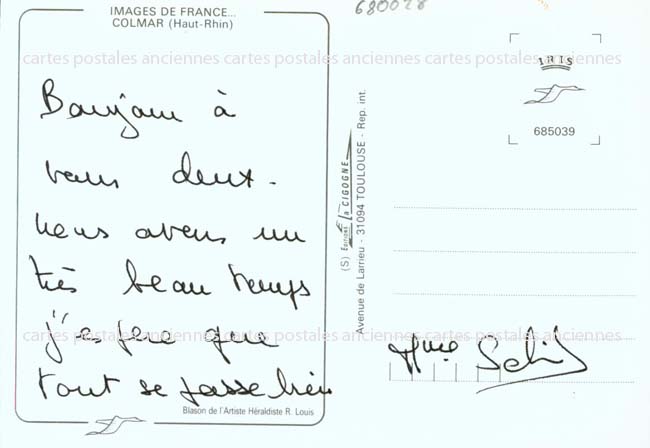 IMAGES DE FRANCE...
COLMAR (Haut-Rhin)
680028
cartes postales anciennes cartes postales anciennes cartes postales anciennes
Bonjour à
vous deux.
nous avons un
très beau temps
j'espère que
tout se passe bien
cartes postales anciennes cartes postales anciennes cartes postales anciennes
Blason de l'Artiste Héraldiste R. Louis
(S) Editions la CIGOGNE
Avenue de Larrieu - 31094 TOULOUSE - Rep. int.
IRIS
685039
Mme